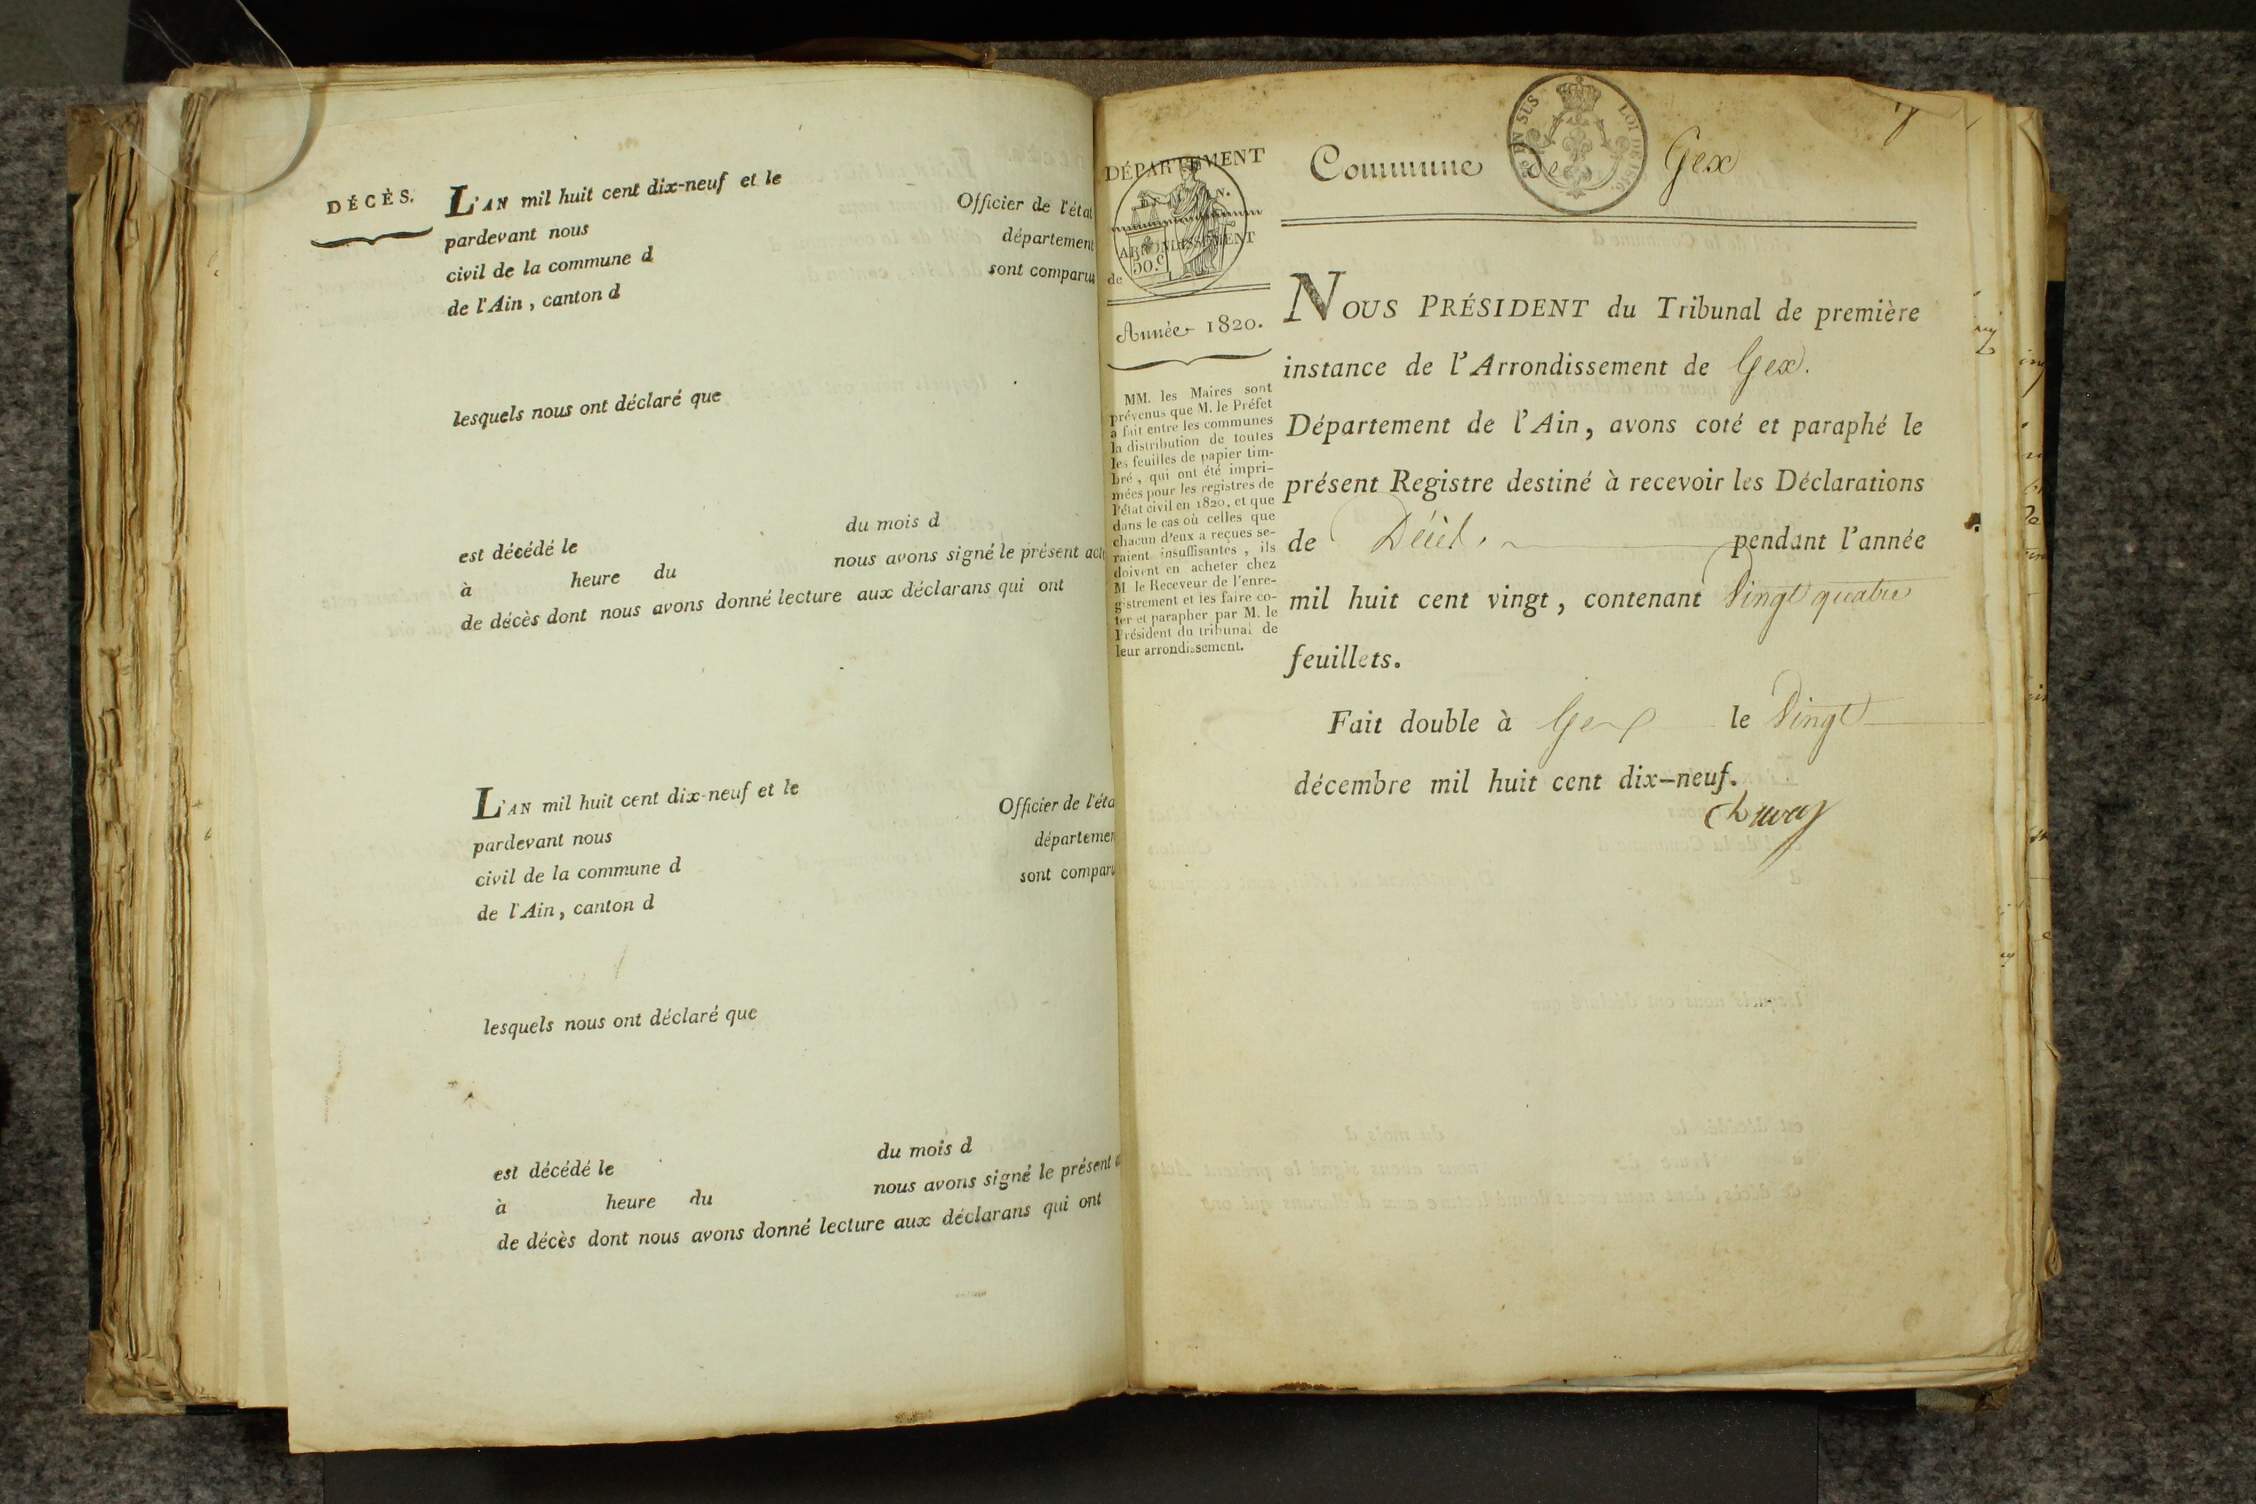 DÉCÈS.
L'AN mil huit cent dix-neuf et le
pardevant nous Officier de l'état
civil de la commune d département
de l'Ain, canton d sont comparus
lesquels nous ont déclaré que
est décédé le du mois d
à heure du nous avons signé le présent acte
de décès dont nous avons donné lecture aux déclarans qui ont
L'AN mil huit cent dix-neuf et le
pardevant nous Officier de l'éta
civil de la commune d départemen
de l'Ain, canton d sont comparu
lesquels nous ont déclaré que
est décédé le du mois d
à heure du nous avons signé le présent a
de décès dont nous avons donné lecture aux déclarans qui ont
DÉPARTEMENT
ARRONDISSEMENT
de
50.c
Année 1820.
MM. les Maires sont
prévenus que M. le Préfet
a fait entre les communes
la distribution de toutes
les feuilles de papier tim-
bré, qui ont été impri-
mées pour les registres de
l'état civil en 1820, et que
dans le cas où celles que
chacun d'eux a reçues se-
raient insuffisantes, ils
doivent en acheter chez
M le Receveur de l'enre-
gistrement et les faire co-
ter et parapher par M. le
Président du tribunal de
leur arrondissement.
EN SUS LOI DE 1816.
Commune de Gex
NOUS PRÉSIDENT du Tribunal de première
instance de l'Arrondissement de Gex.
Département de l'Ain, avons coté et paraphé le
présent Registre destiné à recevoir les Déclarations
de Décès. pendant l'année
mil huit cent vingt, contenant Vingt quatre
feuillets.
Fait double à Gex le Vingt
décembre mil huit cent dix-neuf.